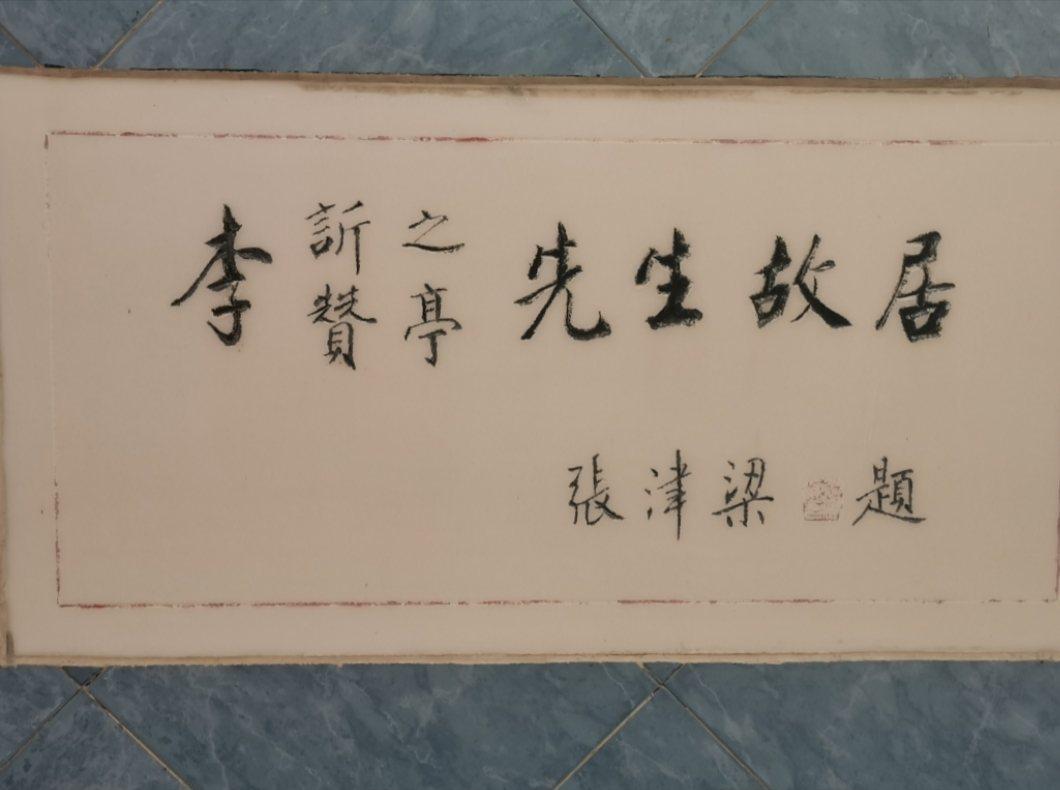 李訢之賛亭先生故居
張津梁題